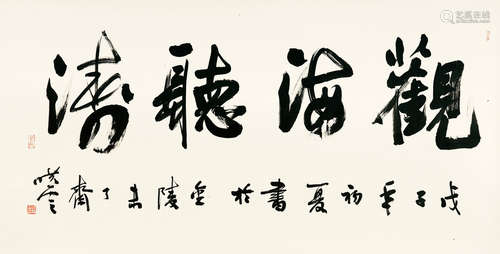 觀海聽濤
戊子年初夏書於金陵未了齋